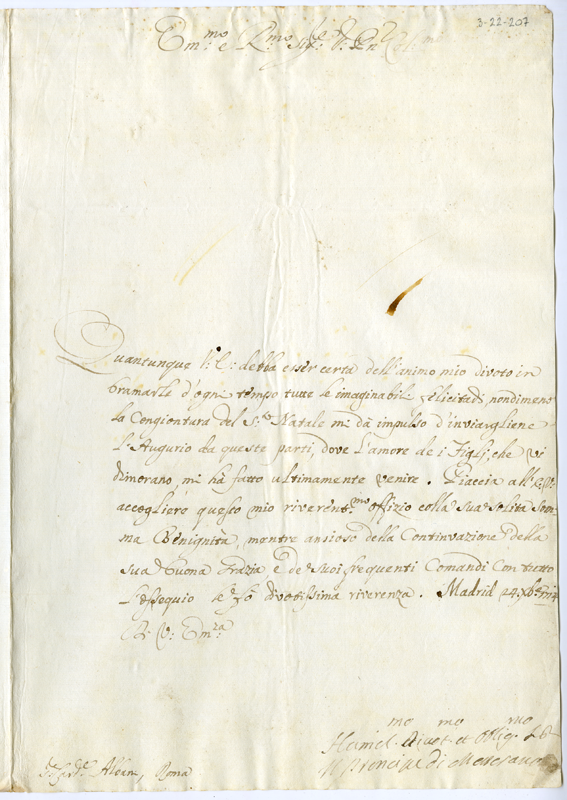 3-22-207
Em.mo e R.mo Sig.re
Quantunque V: E: debba esser certa dell'animo mio divoto in
bramarle d'ogni tempo tutte le imaginabili felicitadi nondimeno
la Congiontura del S.to Natale mi dà impulso d'inviargliene
l'Augurio da queste parti, dove l'amore de i Figli, che vi
dimorano, mi ha fatto ultimamente venire. Piaccia all' E: V:
accogliere questo mio riverent.mo offizio colla sua solita som
ma Benignità, mentre ansioso della Continvazione della
sua buona Grazia e de suoi frequenti Comandi Con tutto
l'ossequio le fò divotissima riverenza. Madrid 24 Xb.re
V: Em.za
Humil.mo divot.mo et Oblig.mo
Il Principe di
Albani, Roma